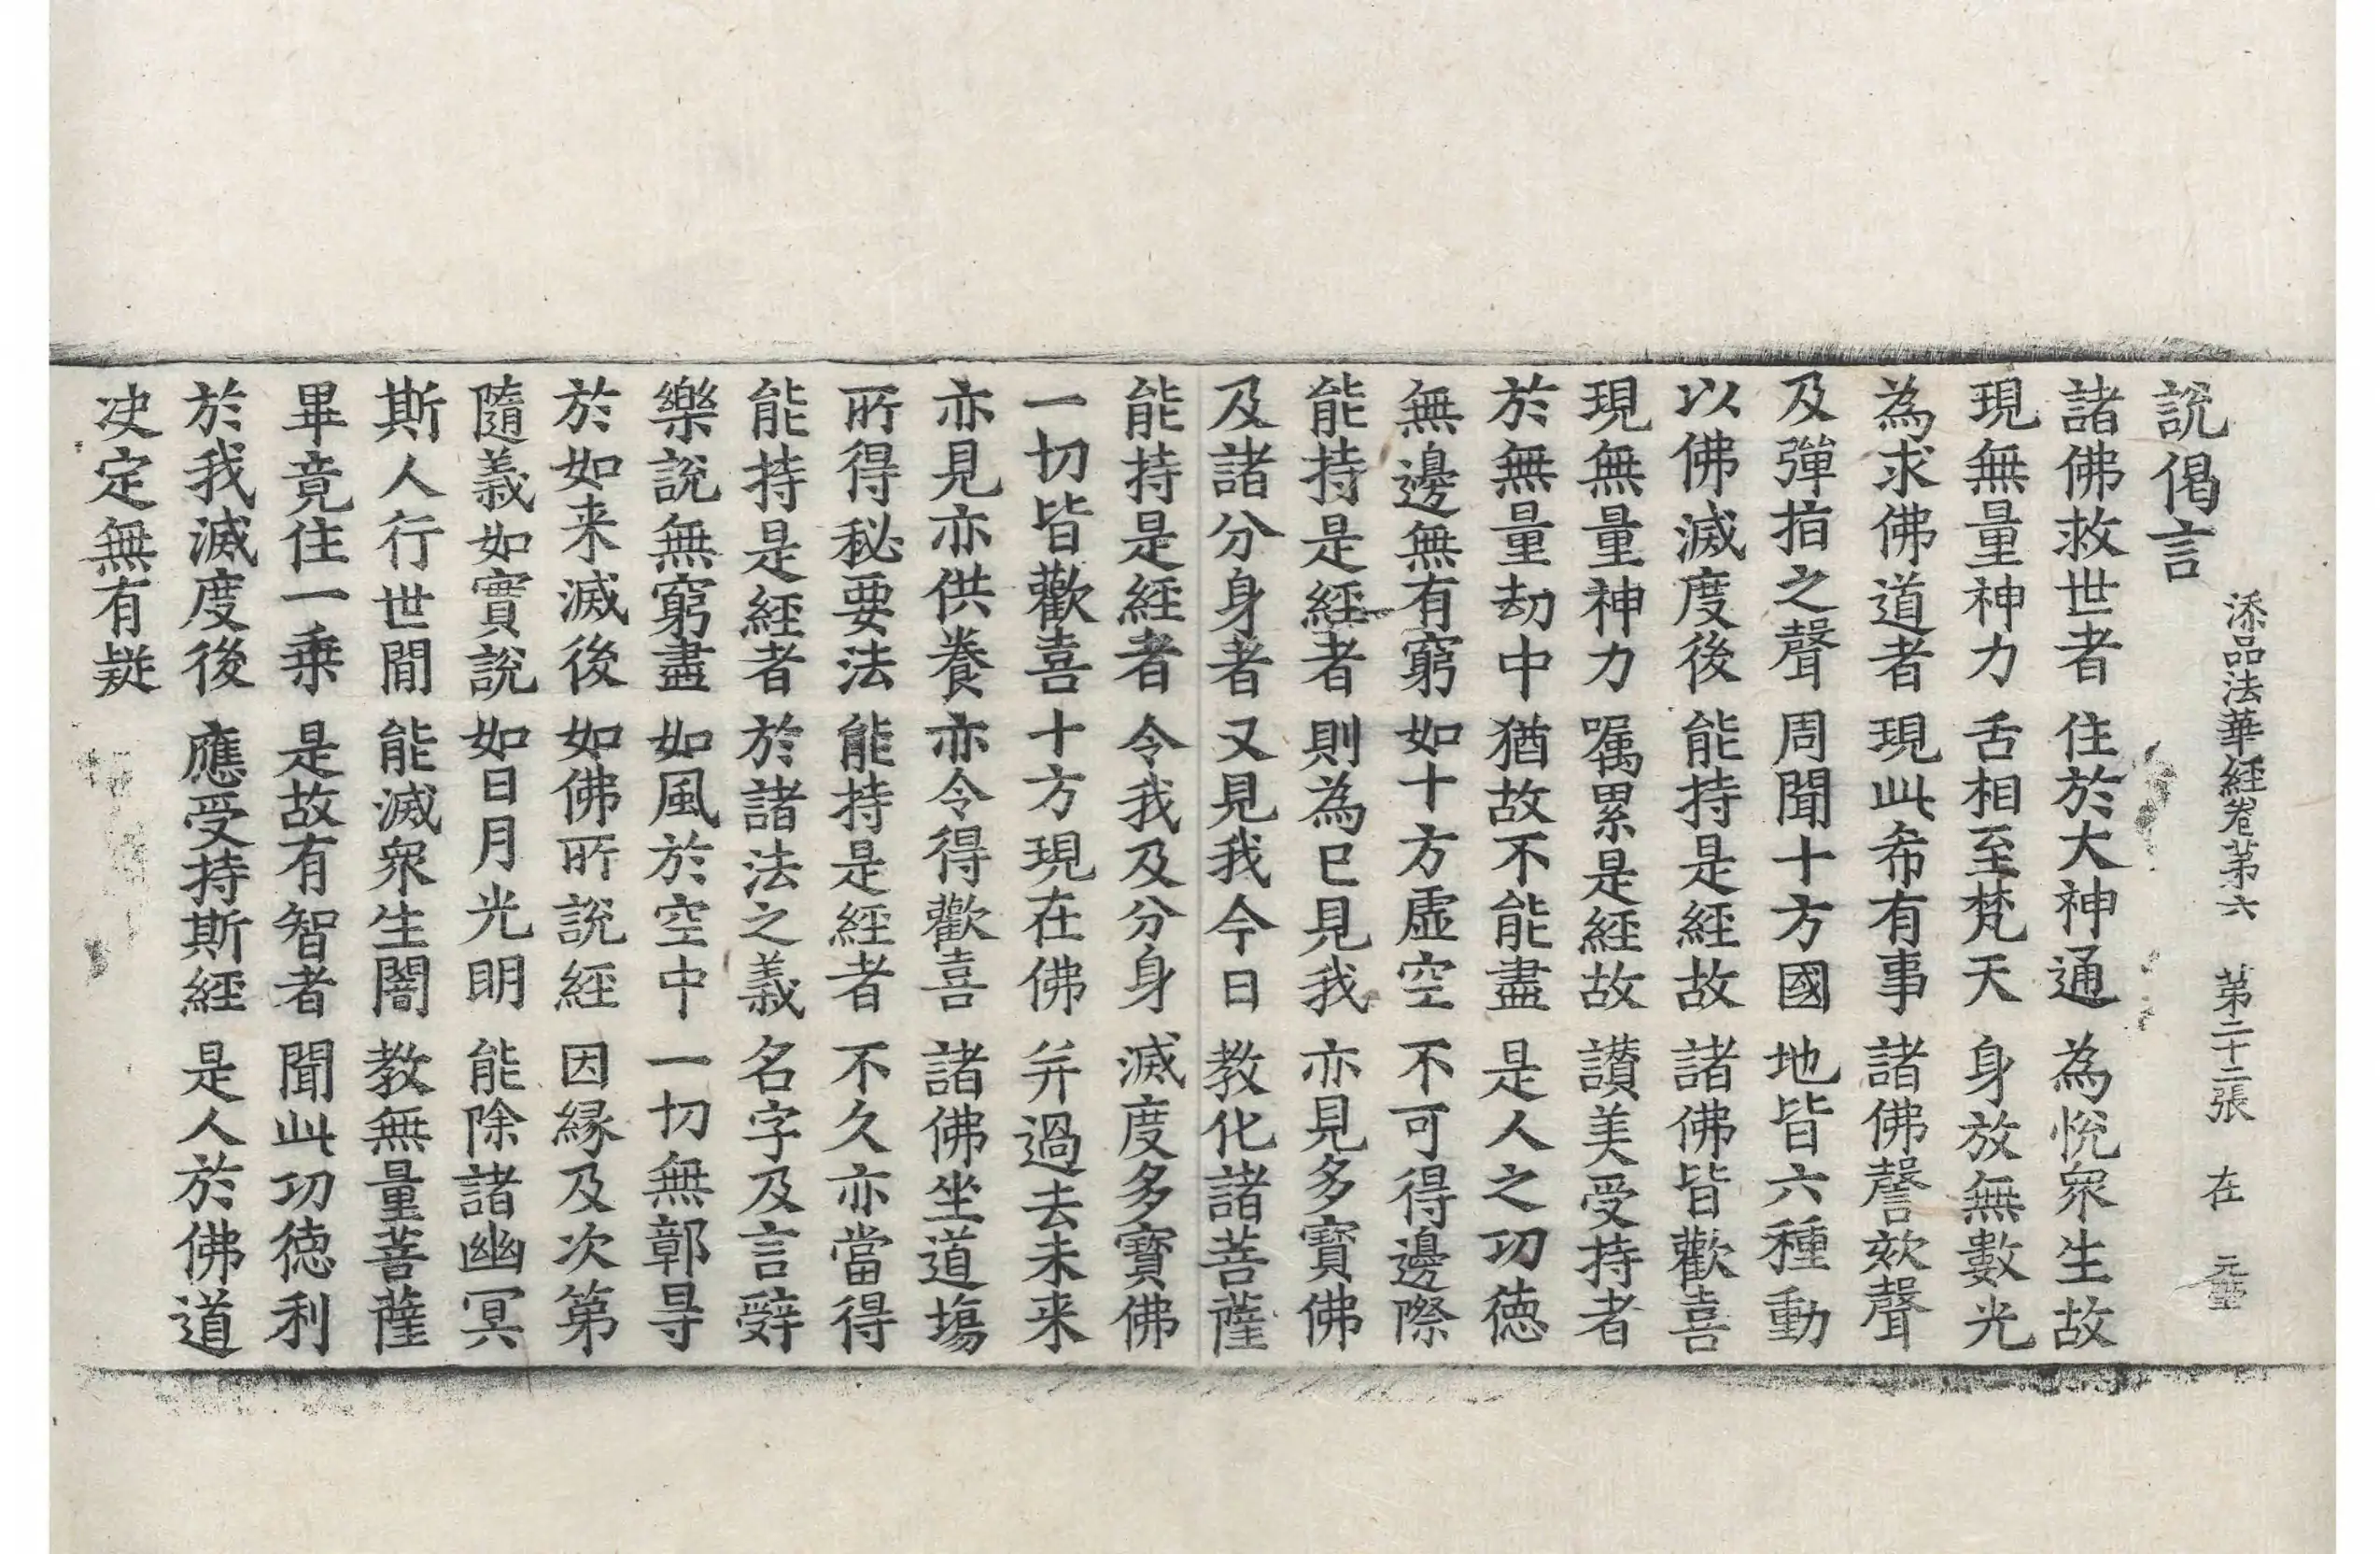 添品法華経卷第六 第二十二張 在
說偈言
諸佛救世者 住於大神通 為悅衆生故
現無量神力 舌相至梵天 身放無數光
為求佛道者 現此希有事 諸佛謦欬聲
及彈指之聲 周聞十方國 地皆六種動
以佛滅度後 能持是經故 諸佛皆歡喜
現無量神力 嘱累是經故 讃美受持者
於無量劫中 猶故不能盡 是人之功德
無邊無有窮 如十方虛空 不可得邊際
能持是經者 則為已見我 亦見多寶佛
及諸分身者 又見我今日 教化諸菩薩
能持是經者 令我及分身 滅度多寶佛
一切皆歡喜 十方現在佛 并過去未来
亦見亦供養 亦令得歡喜 諸佛坐道塲
所得秘要法 能持是經者 不久亦當得
能持是經者 於諸法之義 名字及言辝
樂說無窮盡 如風於空中 一切無鄣㝵
於如来滅後 如佛所說經 因緣及次第
隨義如實說 如日月光明 能除諸幽冥
斯人行世間 能滅衆生闇 教無量菩薩
畢竟住一乗 是故有智者 聞此功德利
於我滅度後 應受持斯經 是人於佛道
决定無有疑